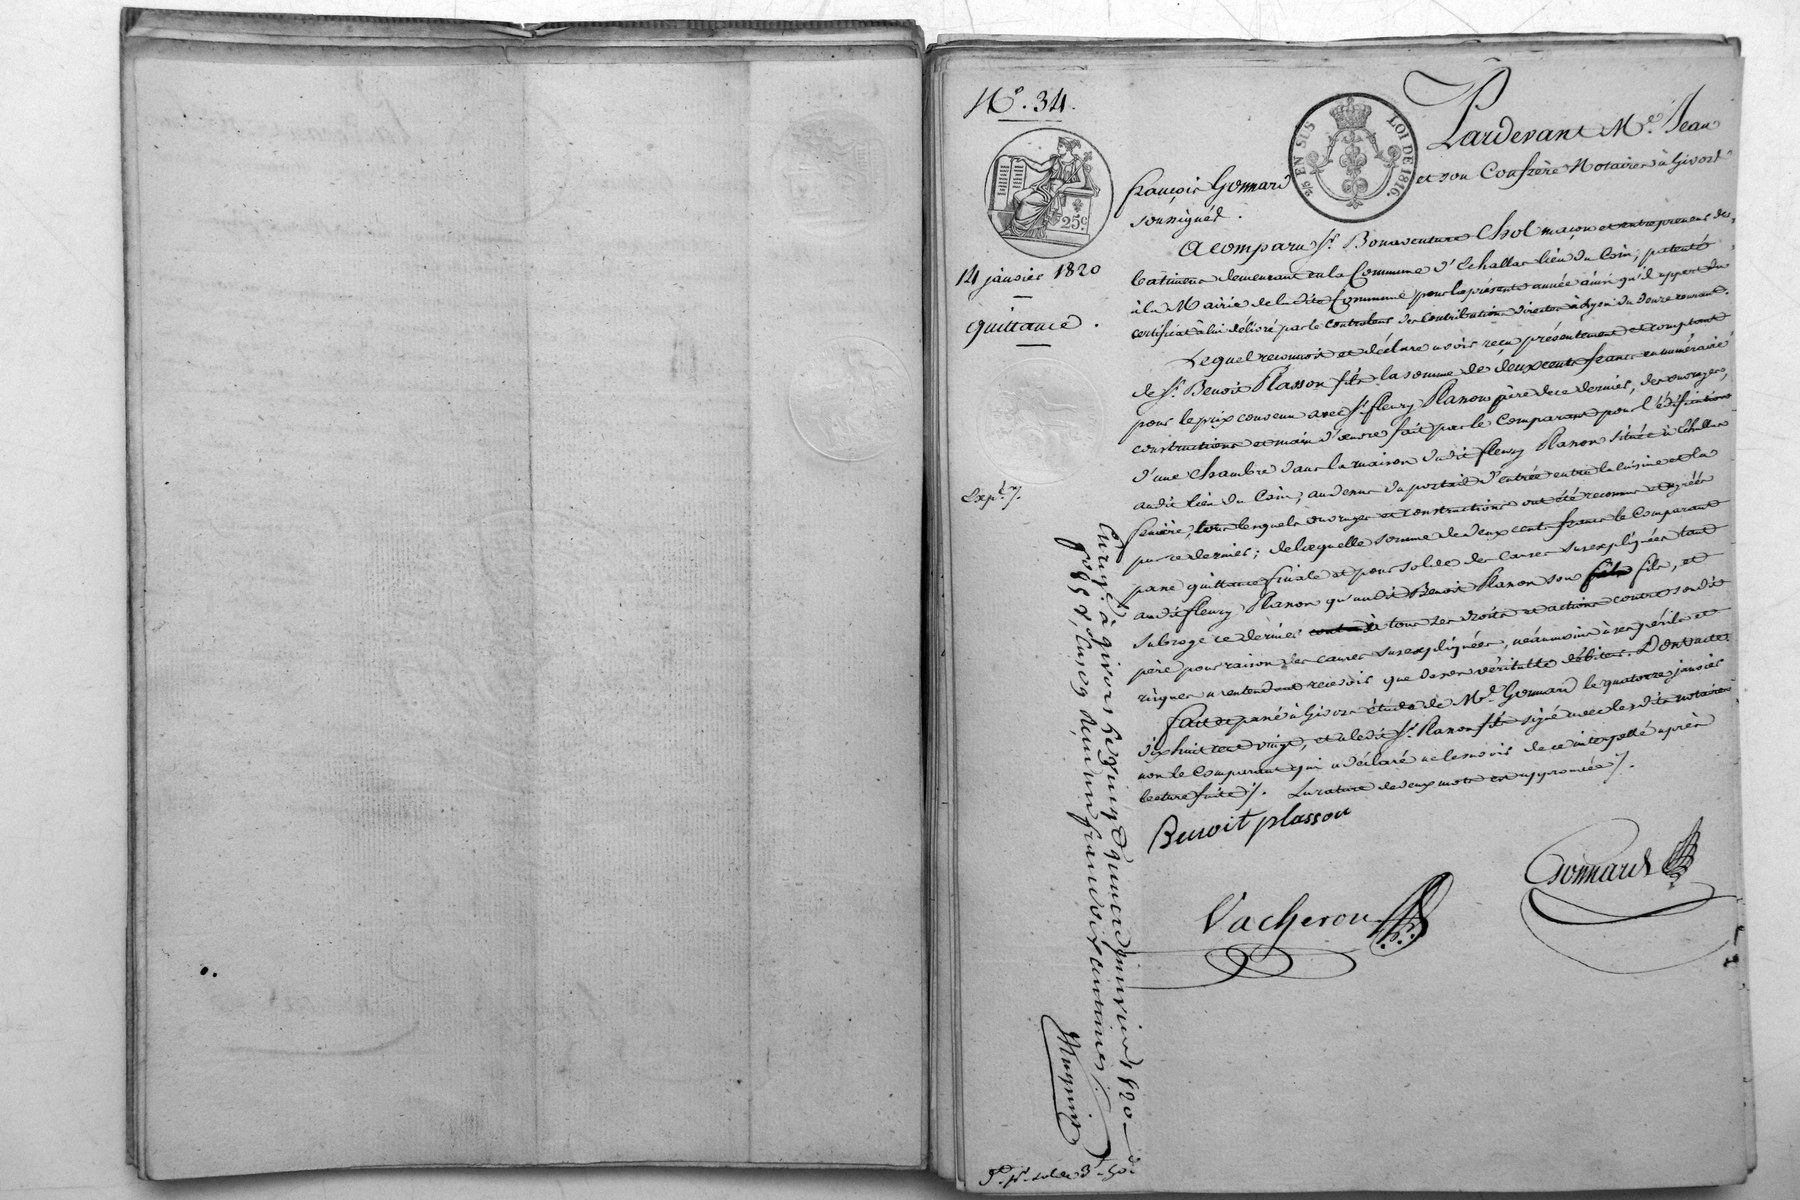 N.° 34.
EN SUS
LOI DE 1816.
25c.
14 janvier 1820
quittance.
Expé. /.
Pardevant Me. Jean
françois Gonnard et son Confrère Notaires à Givors
soussignés.
A comparu Sr. Bonaventure Chol maçon et entrepreneur de
batimens demeurant en la Commune d'Echallas lieu du Coin, patenté
à la Mairie de la dite Commune pour la présente année ainsi qu'il appert du
certificat à lui délivré par le controleur des contributions directes à Lyon du douze courant.
Lequel reconnoit et déclare avoir reçu présentement et comptant
de Sr. Benoit Plasson fils la somme de deux cents francs en numéraire
pour le prix convenu avec Sr. fleury Plasson père de ce dernier, des ouvrages,
constructions et main d'œuvre fait par le Comparant pour l'édification
d'une chambre dans la maison dudit fleury Plasson située à Echallas
audit lieu du Coin, audessus du portail d'entrée entre la cuisine et la
fenière, tous lesquels ouvrages et constructions ont été reconnus et agréés
par ce dernier; de laquelle somme de deux cents francs le Comparant
passe quittance finale et pour solde des causes susexpliquées tant
audit fleury Plasson qu'audit Benoit Plasson son fils fils, et
subroge ce dernier à tous ses droits et actions contre son dit
père pour raison des causes susexpliquées, néanmoins à ses périls et
risques n'entendant recevoir que de son véritable débiteur. Dont acte
fait et passé à Givors étude de Me. Gonnard le quatorze janvier
dix huit cent vingt, et a ledit Sr. Plasson fils signé avec lesdits notaires
non le Comparant qui a déclaré ne le savoir de ce interpellé après
lecture faite /. La rature de deux mots est approuvée /.
Benoit plasson
Gonnard
Vacheron
Enreg. à givors le vingt quatre janvier 1820
f° 55 V, Case 9 reçu un franc dix centimes /.
Magnin